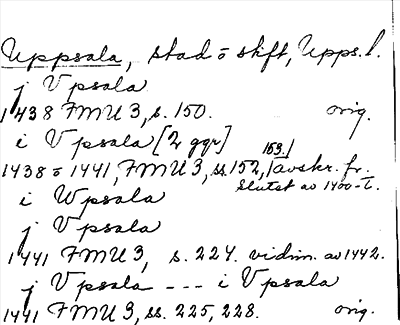 Uppsala, stad o skift, Upps. l.
j Vpsala
1438 FMU 3, s. 150. orig.
i Vpsala [2 ggr]
1438 o 1441, FMU 3, ss. 152, 153./ avskr. fr. slutet av 1400-t.
i Wpsala
j Vpsala
1441 FMU 3, s. 224. vidim. av 1442.
j Vpsala --- i Vpsala
1441 FMU 3, ss. 225, 228. orig.